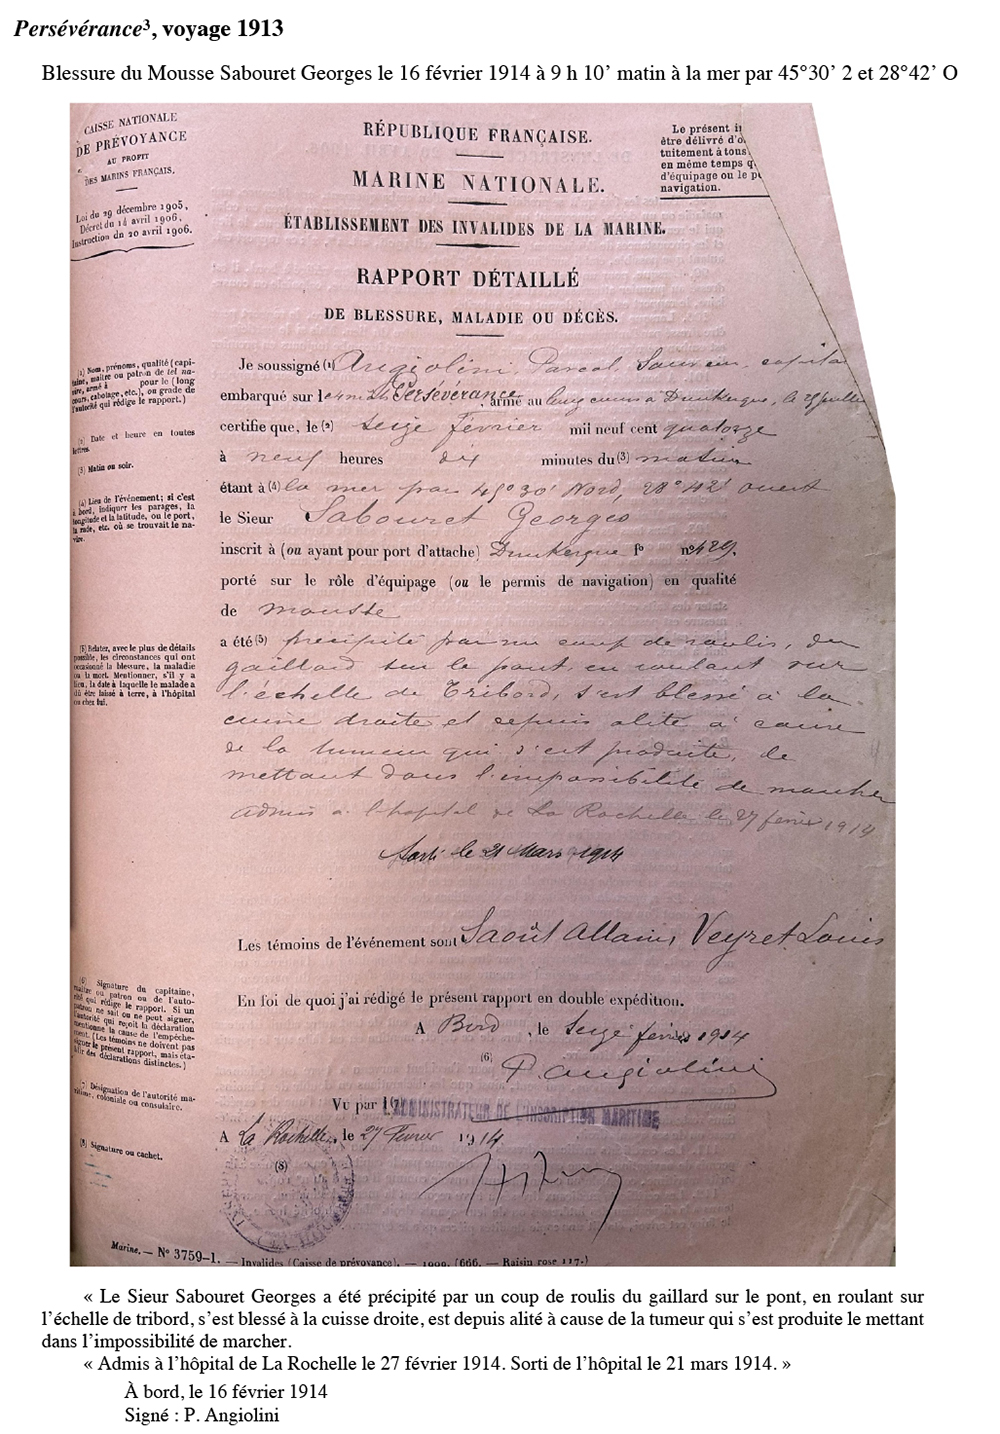 Persévérance³, voyage 1913
Blessure du Mousse Sabouret Georges le 16 février 1914 à 9 h 10’ matin à la mer par 45°30’ 2 et 28°42’ O
CAISSE NATIONALE
DE PRÉVOYANCE
AU PROFIT
DES MARINS FRANÇAIS.
Loi du 29 décembre 1905,
Décret du 14 avril 1906,
Instruction du 20 avril 1906.
RÉPUBLIQUE FRANÇAISE.
MARINE NATIONALE.
ÉTABLISSEMENT DES INVALIDES DE LA MARINE.
RAPPORT DÉTAILLÉ
DE BLESSURE, MALADIE OU DÉCÈS.
Le présent
être délivré
tuitement à tous
en même temps
d'équipage ou le
navigation.
(1) Nom, prénoms, qualité (capi-
taine, maître ou patron de tel na-
vire, armé à pour le (long
cours, cabotage, etc.), ou grade de
l'autorité qui rédige le rapport.)
(2) Date et heure en toutes
lettres.
(3) Matin ou soir.
(4) Lieu de l'événement; si c'est
à bord, indiquer les parages, la
longitude et la latitude, ou le port,
la rade, etc. où se trouvait le na-
vire.
(5) Relater, avec le plus de détails
possible, les circonstances qui ont
occasionné la blessure, la maladie
ou la mort. Mentionner, s'il y a
lieu, la date à laquelle le malade a
dû être laissé à terre, à l'hôpital
ou chez lui.
(6) Signature du capitaine,
maître ou patron ou de l'auto-
rité qui rédige le rapport. Si un
patron ne sait ou ne peut signer,
l'autorité qui reçoit la déclaration
mentionne la cause de l'empêche-
ment. (Les témoins ne doivent pas
signer le présent rapport, mais éta-
blir des déclarations distinctes.)
(7) Désignation de l'autorité ma-
ritime, coloniale ou consulaire.
(8) Signature ou cachet.
Je soussigné (1) Angiolini Pascal Sauveur, capita
embarqué sur le Persévérance, armé au long cours à Dunkerque, le
certifie que, le (2) seize Février mil neuf cent quatorze
à neuf heures dix minutes du (3) matin
étant à (4) la mer par 45°30' Nord, 28°42' ouest
le Sieur Sabouret Georges
inscrit à (ou ayant pour port d'attache) Dunkerque f° n° 429.
porté sur le rôle d'équipage (ou le permis de navigation) en qualité
de mousse
a été (5) précipité par un coup de roulis, du
gaillard sur le pont, en roulant sur
l'échelle de Tribord, s'est blessé à la
cuise droite et depuis alité à cause
de la tumeur qui s'est produite, le
mettant dans l'impossibilité de marcher
admis à l'hopital de La Rochelle le 27 février 1914
Sorti le 21 Mars 1914
Les témoins de l'événement sont Saoût Allain, Veyret Louis
En foi de quoi j'ai rédigé le présent rapport en double expédition.
A Bord, le Seize février 1914
(6)
P. Angiolini
Vu par (7) L'ADMINISTRATEUR DE L'INSCRIPTION MARITIME
A La Rochelle, le 27 Février 1914.
(8)
Marine. — N° 3759-1. — Invalides (Caisse de prévoyance). — 1909. (666. — Raisin rose 117.)
« Le Sieur Sabouret Georges a été précipité par un coup de roulis du gaillard sur le pont, en roulant sur
l’échelle de tribord, s’est blessé à la cuisse droite, est depuis alité à cause de la tumeur qui s’est produite le mettant
dans l’impossibilité de marcher.
« Admis à l’hôpital de La Rochelle le 27 février 1914. Sorti de l’hôpital le 21 mars 1914. »
À bord, le 16 février 1914
Signé : P. Angiolini